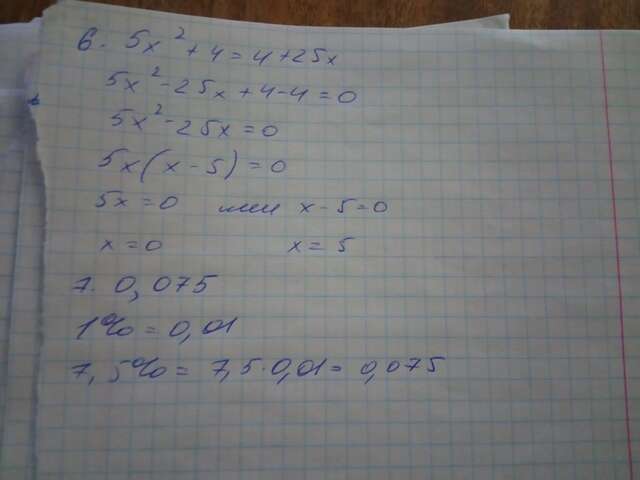 6. 5x² + 4 = 4 + 25x
5x² - 25x + 4 - 4 = 0
5x² - 25x = 0
5x(x - 5) = 0
5x = 0 или x - 5 = 0
x = 0 x = 5
7. 0,075
1% = 0,01
7,5% = 7,5 · 0,01 = 0,075